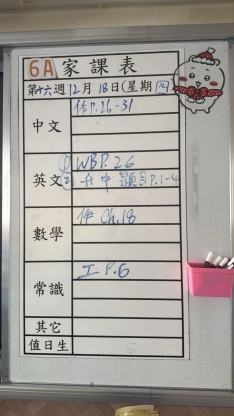 6A 家課表
第十六週12月18日(星期四)
中文 作P.26-31
英文 ① WB P.26
② 升中題目P.1-4
數學 作 Ch.18
常識 工 P.6
其它
值日生